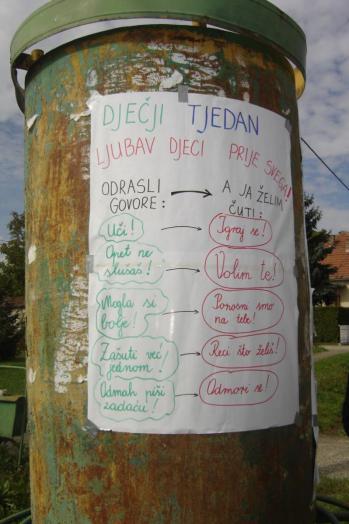 DJEČJI TJEDAN
LJUBAV DJECI PRIJE SVEGA!
ODRASLI GOVORE: → A JA ŽELIM ČUTI:
Uči! → Igraj se!
Opet ne slušaš! → Volim te!
Mogla si bolje! → Ponosni smo na tebe!
Zašuti već jednom! → Reci što želiš!
Odmah piši zadaću! → Odmori se!